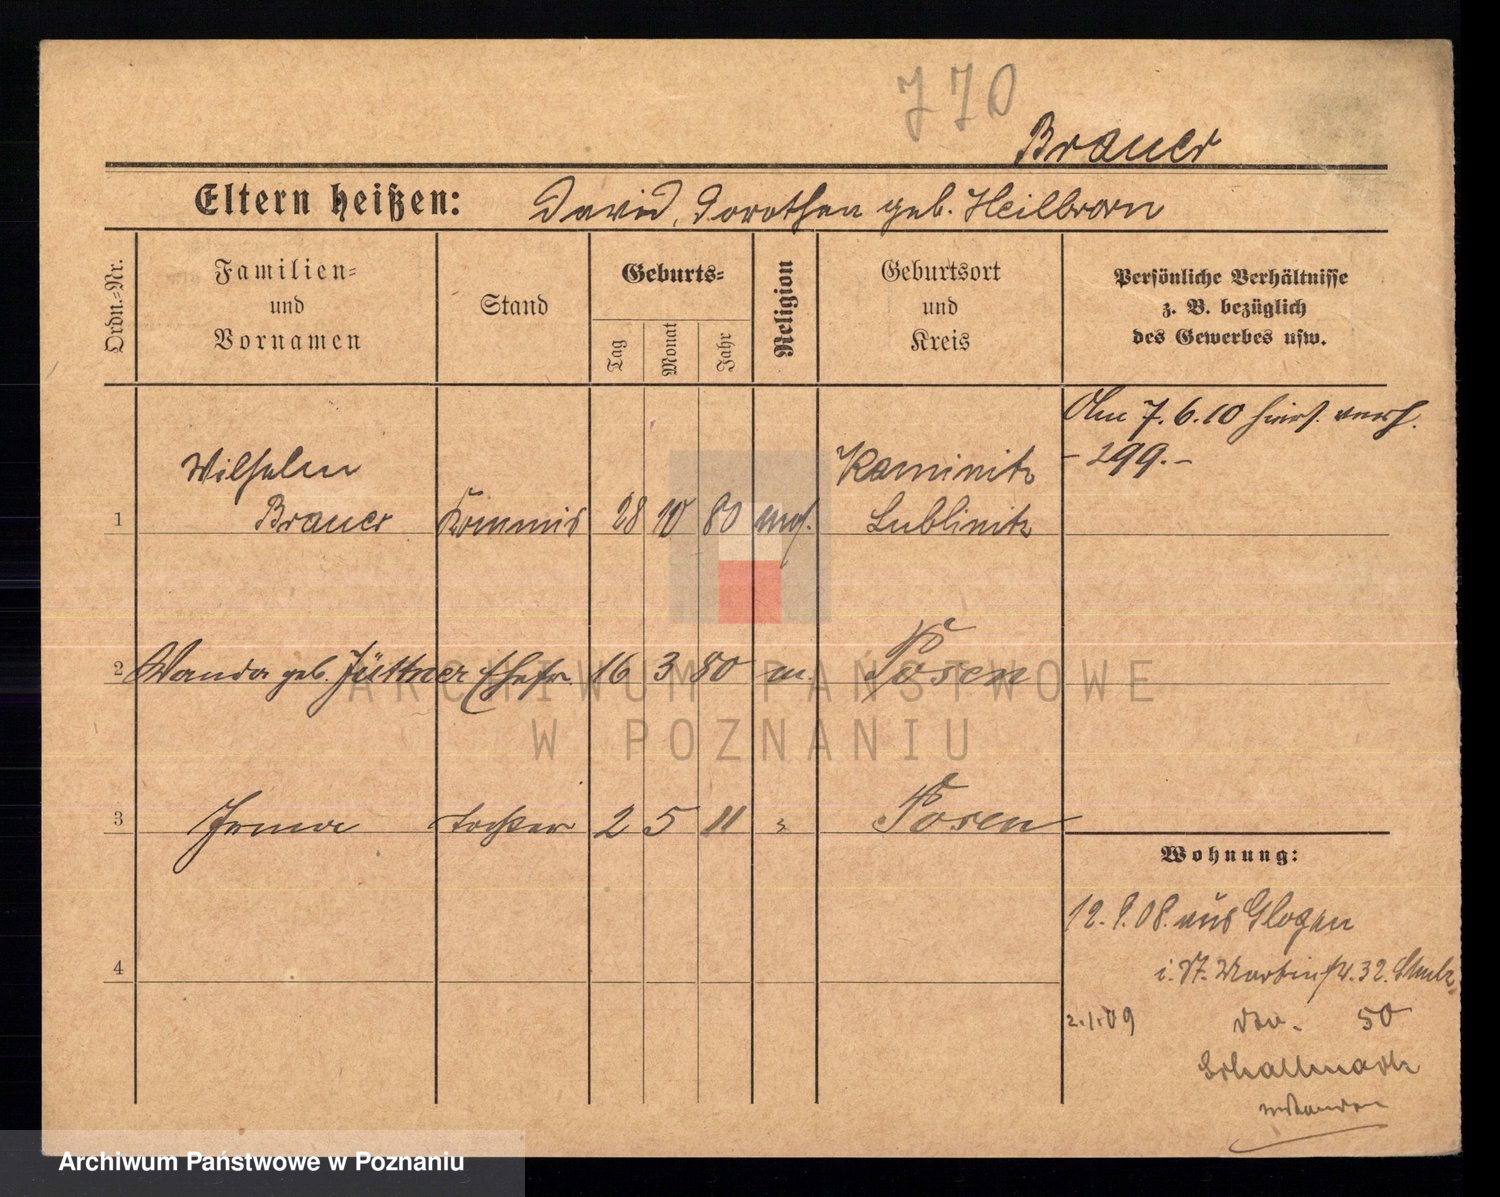 770
Brauer
Eltern heißen: David, Dorothea geb. Heilborn
Ordn.-Nr.
Familien-
und
Vornamen
Stand
Geburts-
Tag
Monat
Jahr
Religion
Geburtsort
und
Kreis
Persönliche Verhältnisse
z. B. bezüglich
des Gewerbes usw.
Am 7.6.10 hiers. verh.
- 299.-
Wilhelm Kaminitz
1 Brauer Kommis 28 10 80 mos. Lublinitz
2 Wanda geb. Jüttner Ehefr. 16 3 80 m. Posen
3 Irma Tochter 2 5 11 " Posen
4
Wohnung:
12.9.08. aus Glogau
i. St. Martinstr. 32.
2.1.09 do. 50
ARCHIWUM PAŃSTWOWE
W POZNANIU
Archiwum Państwowe w Poznaniu